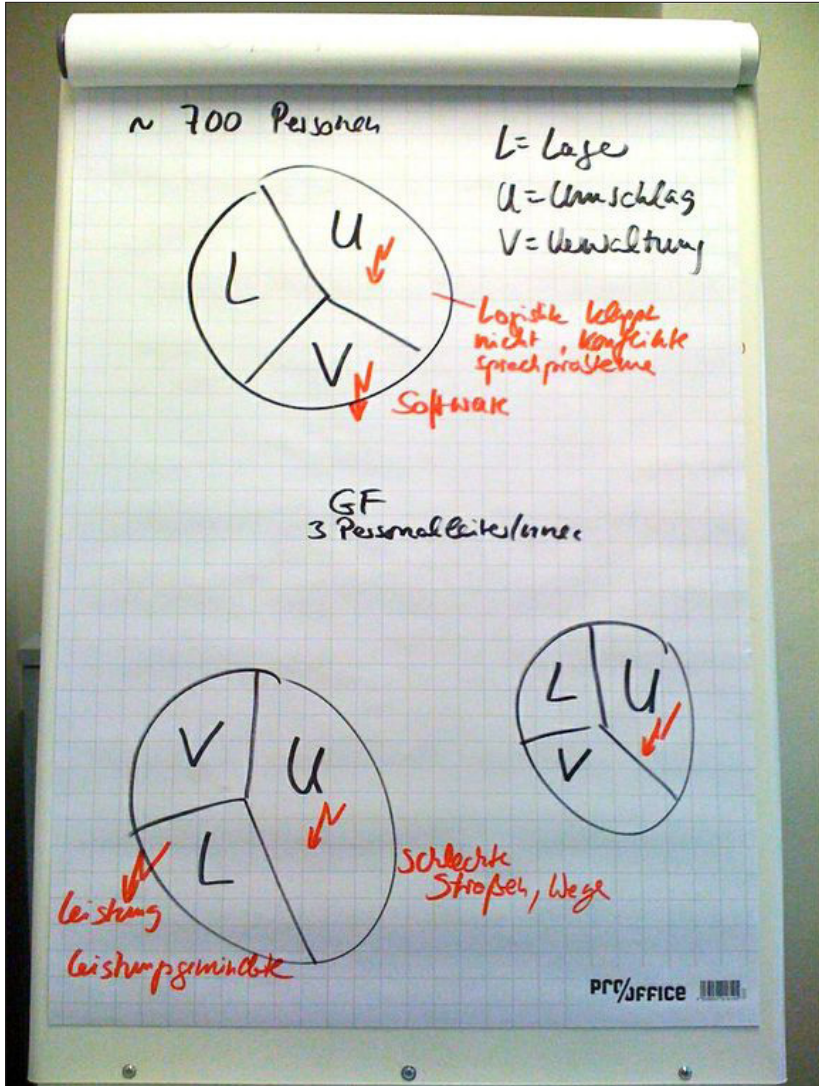 ~ 700 Personen
L = Lager
U = Umschlag
V = Verwaltung
U
L
V
Logistik klappt
nicht, Konflikte
Sprachprobleme
Software
GF
3 PersonalleiterInnen
L
U
V
V
U
L
Schlechte
Straßen, Wege
Leistung
Leistungsgeminderte
PRO/OFFICE